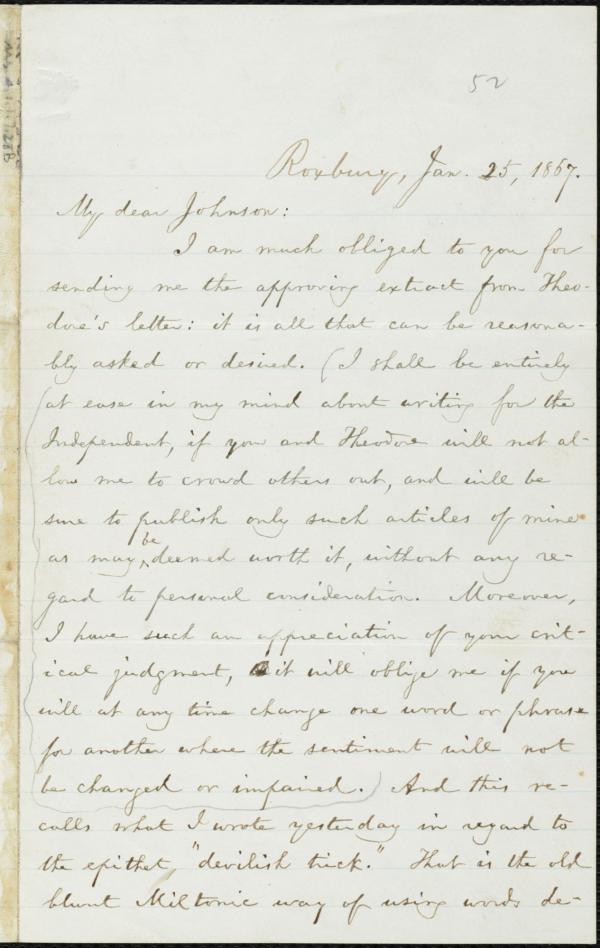 52
Roxbury, Jan. 25, 1867.
My dear Johnson:
I am much obliged to you for
sending me the approving extract from Theo-
dore's letter: it is all that can be reasona-
bly asked or desired. (I shall be entirely
at ease in my mind about writing for the
Independent, if you and Theodore will not al-
low me to crowd others out, and will be
sure to publish only such articles of mine
be
as may deemed worth it, without any re-
gard to personal consideration. Moreover,
I have such an appreciation of your crit-
ical judgment, it will oblige me if you
will at any time change one word or phrase
for another where the sentiment will not
be changed or impaired.) And this re-
calls what I wrote yesterday in regard to
the epithet, "devilish trick." That is the old
blunt Miltonic way of using words de-